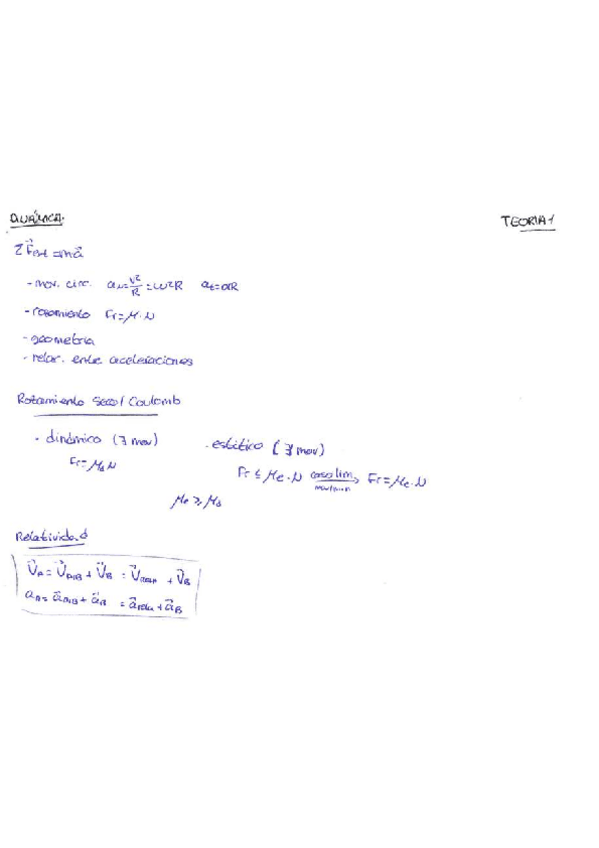 DINÁMICA. TEORIA 1
Σ F⃗ext = ma⃗
- mov. circ. aN = v²/R = ω²R at = αR
- rozamiento Fr = μ·N
- geometria
- relac. entre aceleraciones
Rozamiento Seco/Coulomb
· dinámico (∃ mov) · estático (∄ mov)
Fr = μd N Fr ≤ μe·N caso lim. → Fr = μe·N
μe ⩾ μd
Relativida d
V⃗A = V⃗A/B + V⃗B = V⃗ + V⃗B
a⃗A = a⃗A/B + a⃗B = a⃗ + a⃗B